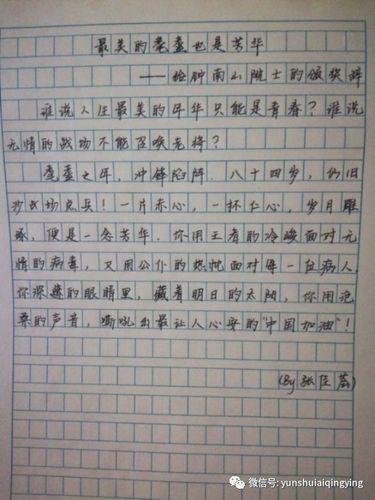 最美的耄耋也是芳华
——给钟南山院士的颁奖辞
谁说人生最美的年华只能是青春？谁说
无情的战场不能召唤老将？
耄耋之年，冲锋陷阵。八十四岁，仍旧
沙战场点兵！一片赤心，一怀仁心，岁月雕
琢，便是一念芳华。你用王者的冷峻面对无
情的病毒，又用公仆的热忱面对每一位病人，
你深邃的眼睛里，藏着明日的太阳，你用沧
桑的声音，嘶吼出最让人心安的“中国加油”！
(By 张佳
微信号: yunshuaiqingying